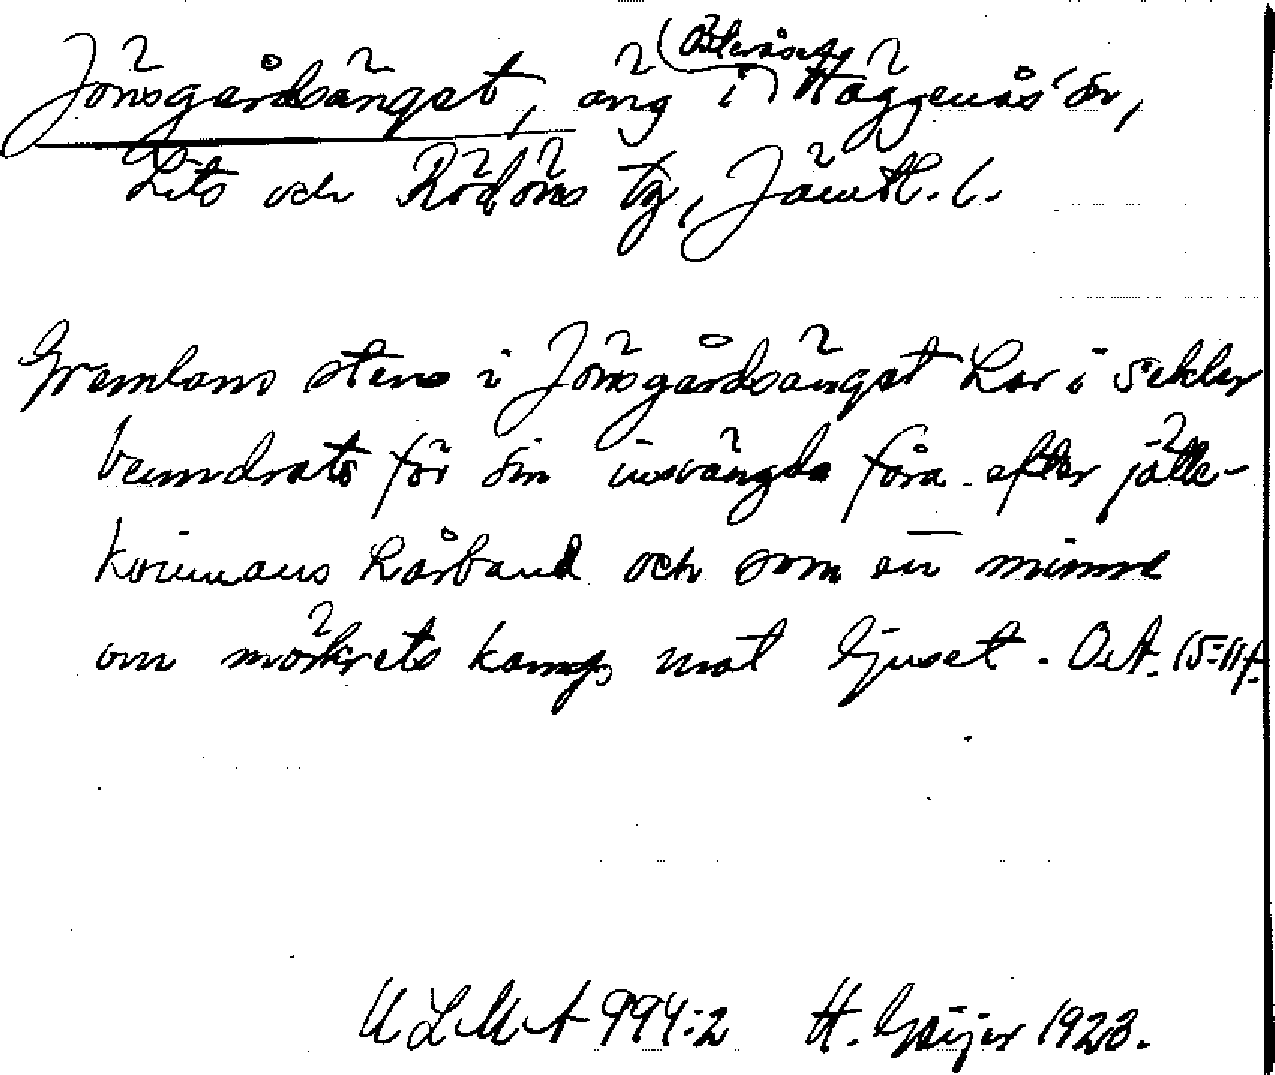 Jönsgårdsänget, äng i (Österåsen) Häggenås' sn,
Lits och Rödöns tg, Jämtl. l.
Gremlans sten i Jönsgårdsänget har i sekler
beundrats för sin insvängda fåra efter jätte-
kvinnans hårband och som ett minne
om mörkrets kamp mot ljuset. Ort. 15-11 f.
ULMA 994:2 H. Geijer 1923.